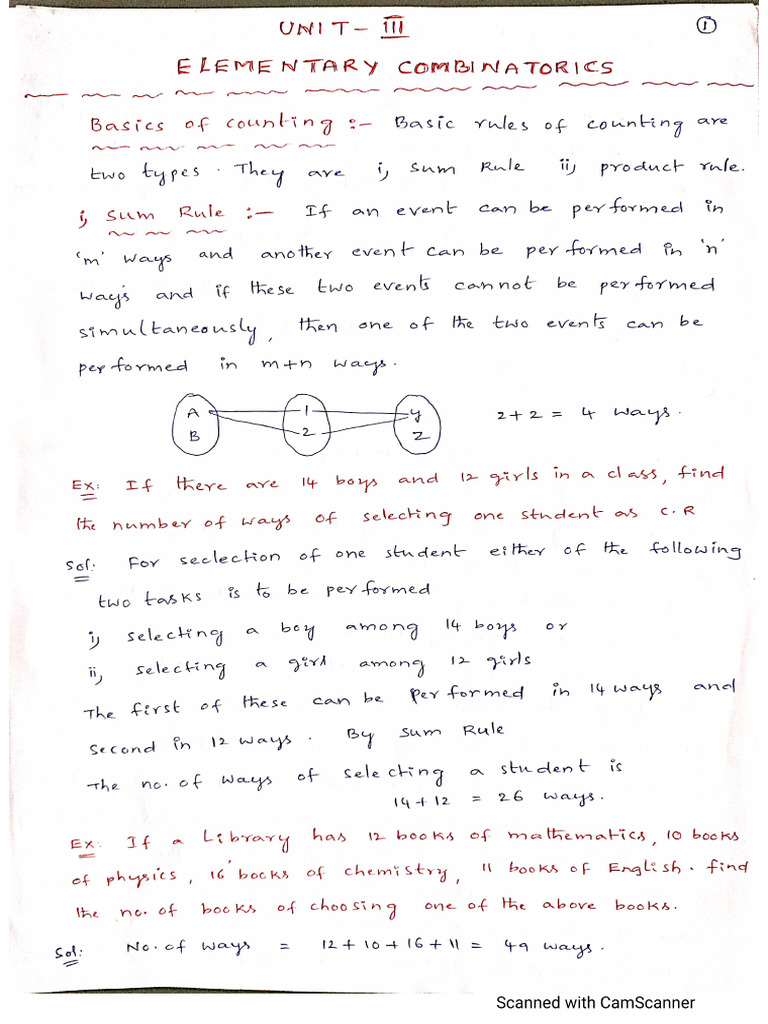 UNIT - III
1
ELEMENTARY COMBINATORICS
Basics of counting :- Basic rules of counting are
two types. They are i, sum Rule ii, product rule.
i, Sum Rule :- If an event can be performed in
'm' ways and another event can be performed in 'n'
ways and if these two events cannot be performed
simultaneously, then one of the two events can be
performed in m+n ways.
A 1 y
B 2 Z
2+2 = 4 ways.
Ex: If there are 14 boys and 12 girls in a class, find
the number of ways of selecting one student as C.R
Sol: For seclection of one student either of the following
two tasks is to be performed
i, selecting a boy among 14 boys or
ii, selecting a girl among 12 girls
The first of these can be performed in 14 ways and
second in 12 ways. By sum Rule
The no. of ways of selecting a student is
14+12 = 26 ways.
Ex: If a Library has 12 books of mathematics, 10 books
of physics, 16 books of chemistry, 11 books of English. find
the no. of books of choosing one of the above books.
Sol: No. of ways = 12+10+16+11 = 49 ways.
Scanned with CamScanner